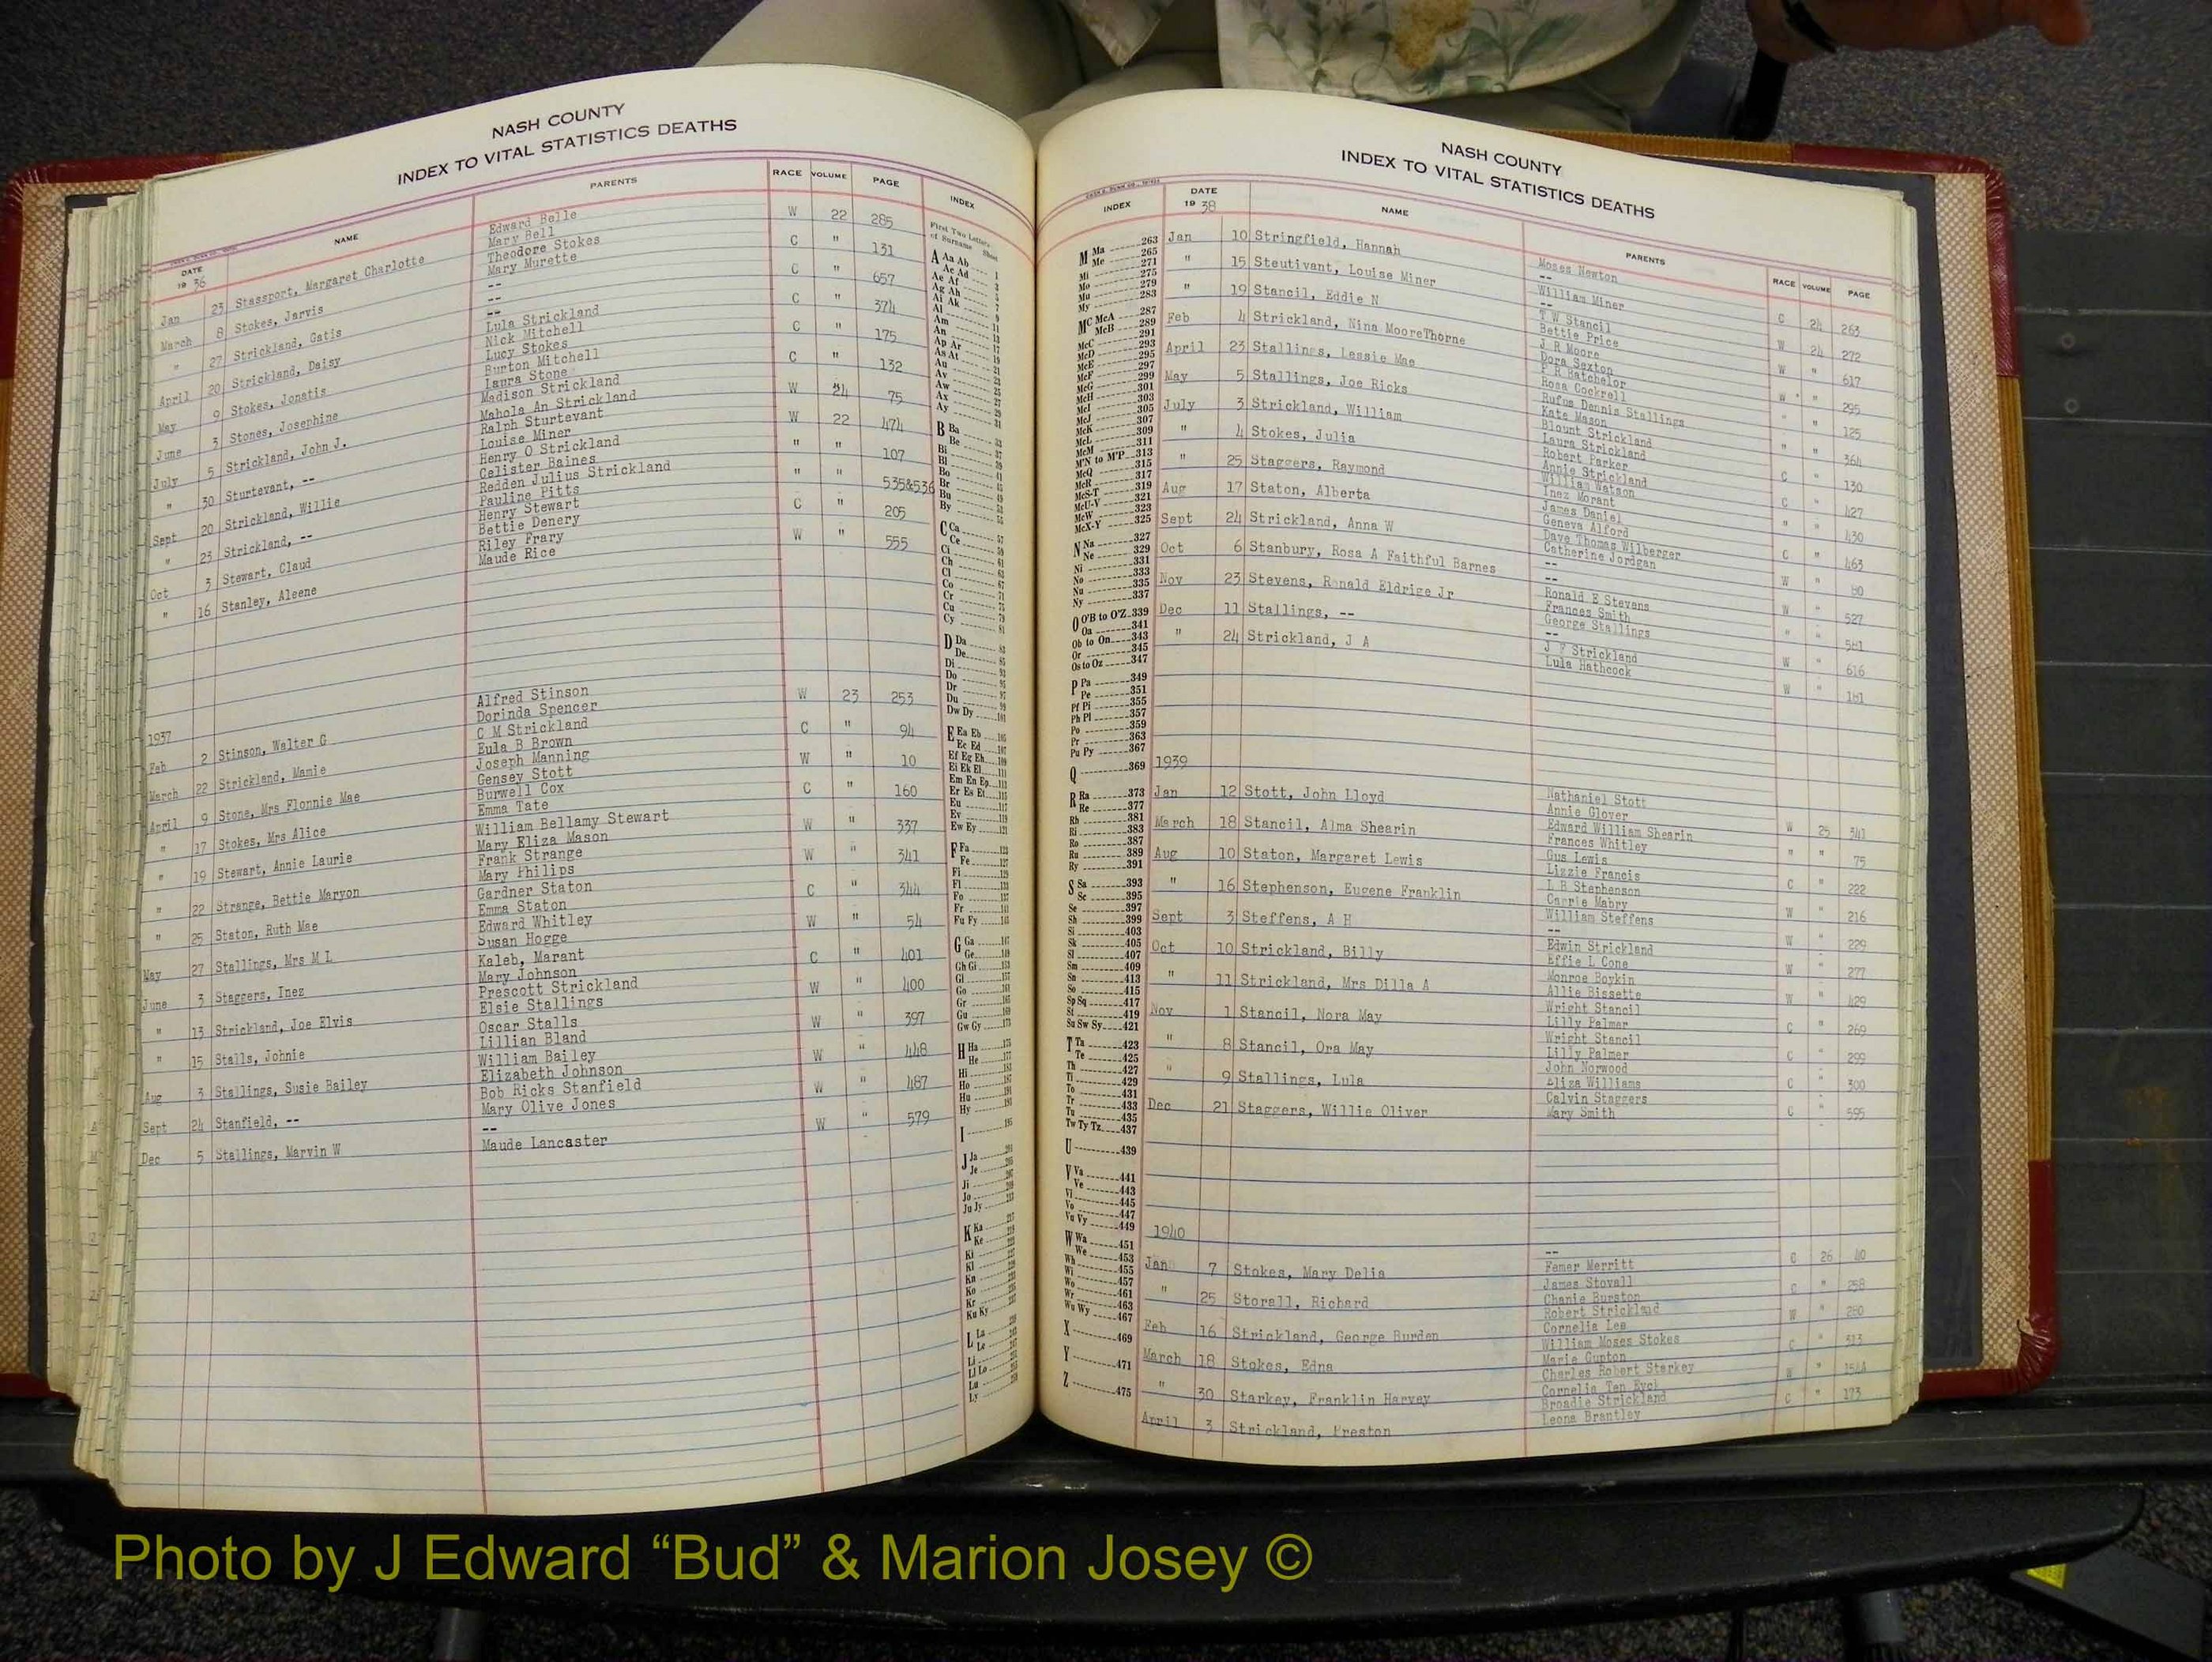 NASH COUNTY
INDEX TO VITAL STATISTICS DEATHS
DATE NAME PARENTS RACE VOLUME PAGE INDEX
19 36
Edward Belle
Jan 23 Stassport, Margaret Charlotte Mary Bell W 22 285
Theodore Stokes
March 8 Stokes, Jarvis Mary Murette C " 131
--
" 27 Strickland, Gatis -- C " 657
--
April 20 Strickland, Daisy Lula Strickland C " 374
Nick Mitchell
May 9 Stokes, Jonatis Lucy Stokes C " 175
Burton Mitchell
June 3 Stones, Josephine Laura Stone C " 132
Madison Strickland
July 5 Strickland, John J. Mahola An Strickland W 24 75
Ralph Sturtevant
" 30 Sturtevant, -- Louise Miner W 22 474
Henry O Strickland
Sept 20 Strickland, Willie Celister Baines " " 107
Redden Julius Strickland
" 23 Strickland, -- Pauline Pitts " " 535&536
Henry Stewart
Oct 3 Stewart, Claud Bettie Denery C " 205
Riley Frary
" 16 Stanley, Aleene Maude Rice W " 555
1937
Alfred Stinson
Feb 2 Stinson, Walter G Dorinda Spencer W 23 253
C M Strickland
March 22 Strickland, Mamie Eula B Brown C " 94
Joseph Manning
April 9 Stone, Mrs Flonnie Mae Gensey Stott W " 10
Burwell Cox
" 17 Stokes, Mrs Alice Emma Tate C " 160
William Bellamy Stewart
" 19 Stewart, Annie Laurie Mary Eliza Mason W " 337
Frank Strange
" 22 Strange, Bettie Maryon Mary Philips W " 341
Gardner Staton
" 25 Staton, Ruth Mae Emma Staton C " 344
Edward Whitley
May 27 Stallings, Mrs M L Susan Hogge W " 54
Kaleb, Marant
June 3 Staggers, Inez Mary Johnson C " 401
Prescott Strickland
" 13 Strickland, Joe Elvis Elsie Stallings W " 400
Oscar Stalls
" 15 Stalls, Johnie Lillian Bland W " 397
William Bailey
Aug 3 Stallings, Susie Bailey Elizabeth Johnson W " 448
Bob Ricks Stanfield
Sept 24 Stanfield, -- Mary Olive Jones W " 487
--
Dec 5 Stallings, Marvin W Maude Lancaster W " 579
First Two Letters
of Surname Sheet
A Aa Ab
Ae Ad
Ae Af
Ag Ah
Ai Ak
Al
Am
An
Ap Ar
As At
Au
Av
Aw
Ax
Ay
B Ba
Be
Bi
Bl
Bo
Br
Bu
By
C Ca
Ce
Ci
Ch
Cl
Co
Cr
Cu
Cy
D Da
De
Di
Do
Dr
Du
Dw Dy
E Ea Eb
Ec Ed
Ef Eg Eh
Ei Ek El
Em En Ep
Er Es Et
Eu
Ev
Ew Ey
F Fa
Fe
Fi
Fl
Fo
Fr
Fu Fy
G Ga
Ge
Gh Gi
Gl
Go
Gr
Gu
Gw Gy
H Ha
He
Hi
Ho
Hu
Hy
I
J Ja
Je
Ji
Jo
Ju Jy
K Ka
Ke
Ki
Kl
Kn
Ko
Kr
Ku Ky
L La
Le
Li
Ll Lo
Lu
Ly
NASH COUNTY
INDEX TO VITAL STATISTICS DEATHS
INDEX DATE NAME PARENTS RACE VOLUME PAGE
19 38
M Ma 263
Me 265
Mi 271
Mo 275
Mu 279
My 283
Mc McA 287
McB 289
McC 291
McD 293
McE 295
McF 297
McG 299
McH 301
McI 303
McJ 305
McK 307
McL 309
McM 311
M'N to M'P 313
McQ 315
McR 317
McS-T 319
McU-V 321
McW 323
McX-Y 325
N Na 327
Ne 329
Ni 331
No 333
Nu 335
Ny 337
O O'B to O'Z 339
Oa 341
Ob to On 343
Or 345
Os to Oz 347
P Pa 349
Pe 351
Pf Pi 355
Ph Pl 357
Po 359
Pr 363
Pu Py 367
Q 369
R Ra 373
Re 377
Rh 381
Ri 383
Ro 387
Ru 389
Ry 391
S Sa 393
Sc 395
Se 397
Sh 399
Si 403
Sk 405
Sl 407
Sm 409
Sn 413
So 415
Sp Sq 417
St 419
Su Sw Sy 421
T Ta 423
Te 425
Th 427
Ti 429
To 431
Tr 433
Tu 435
Tw Ty Tz 437
U 439
V Va 441
Ve 443
Vi 445
Vo 447
Vu Vy 449
W Wa 451
We 453
Wh 455
Wi 457
Wo 461
Wr 463
Wu Wy 467
X 469
Y 471
Z 475
Jan 10 Stringfield, Hannah Moses Newton C 24 263
--
" 15 Steutivant, Louise Miner William Miner W 24 272
--
" 19 Stancil, Eddie N T W Stancil W " 617
Bettie Price
Feb 4 Strickland, Nina MooreThorne J R Moore W " 295
Dora Sexton
April 23 Stallings, Lessie Mae P R Batchelor " " 125
Rosa Cockrell
May 5 Stallings, Joe Ricks Rufus Dennis Stallings " " 364
Kate Mason
July 3 Strickland, William Blount Strickland C " 130
Laura Strickland
" 4 Stokes, Julia Robert Parker C " 427
Annie Strickland
" 25 Staggers, Raymond William Watson " " 430
Inez Morant
Aug 17 Staton, Alberta James Daniel C " 463
Geneva Alford
Sept 24 Strickland, Anna W Dave Thomas Wilberger W " 80
Catherine Jordgan
Oct 6 Stanbury, Rosa A Faithful Barnes -- W " 527
--
Nov 23 Stevens, Ronald Eldrige Jr Ronald E Stevens " " 581
Frances Smith
Dec 11 Stallings, -- George Stallings W " 616
--
" 24 Strickland, J A J F Strickland W " 181
Lula Hathcock
1939
Jan 12 Stott, John Lloyd Nathaniel Stott W 25 341
Annie Glover
March 18 Stancil, Alma Shearin Edward William Shearin " " 75
Frances Whitley
Aug 10 Staton, Margaret Lewis Gus Lewis C " 222
Lizzie Francis
" 16 Stephenson, Eugene Franklin L B Stephenson W " 216
Carrie Mabry
Sept 3 Steffens, A H William Steffens W " 229
--
Oct 10 Strickland, Billy Edwin Strickland W " 277
Effie L Cone
" 11 Strickland, Mrs Dilla A Monroe Boykin W " 429
Allie Bissette
Nov 1 Stancil, Nora May Wright Stancil C " 269
Lilly Palmer
" 8 Stancil, Ora May Wright Stancil C " 299
Lilly Palmer
" 9 Stallings, Lula John Norwood C " 300
Eliza Williams
Dec 21 Staggers, Willie Oliver Calvin Staggers C " 595
Mary Smith
1940
--
Jan 7 Stokes, Mary Delia Famer Merritt C 26 40
James Stovall
" 25 Storall, Richard Chanie Burston C " 258
Robert Strickland
Feb 16 Strickland, George Burden Cornelia Lee W " 280
William Moses Stokes
March 18 Stokes, Edna Marie Gupton C " 313
Charles Robert Starkey
" 30 Starkey, Franklin Harvey Cornelia Ten Eyck W " 154A
Broadie Strickland
April 3 Strickland, Preston Leona Brantley C " 173
Photo by J Edward “Bud” & Marion Josey ©